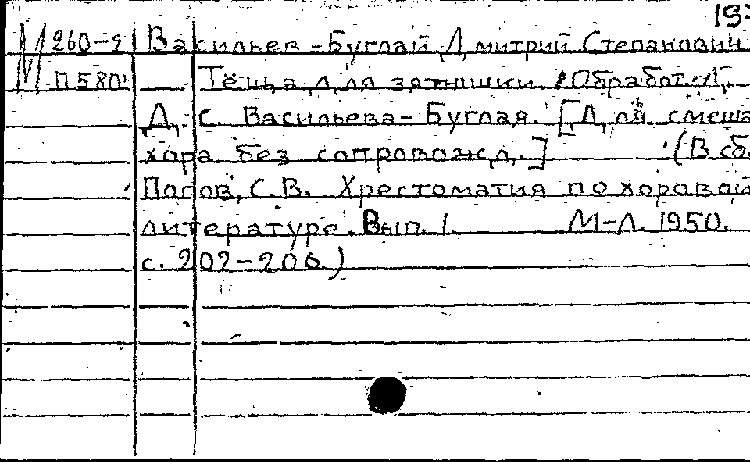 19
М 260-2 Васильев-Буглай Дмитрий Степанович
П 580 Тёща для зятюшки. Обработка
Д. С. Васильева-Буглая. [Для смеша
хора без сопровожд.] (В сб.
Попов, С.В. Хрестоматия по хоровой
литературе. Вып. 1. М-Л. 1950.
с. 202-206)